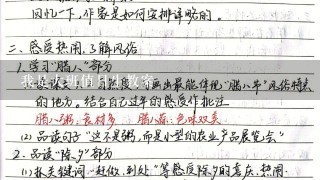 回忆一下,作家是如何安排详略的。
二、感受热闹,了解风俗
1、学习“腊八”部分
我是大班值日生教案
画出最能体现“腊八节”风俗特点
的地方。结合自己过年的感受作批注
腊八粥:食材多 腊八蒜:色味双美
(2) 品读句子“这不是粥,而是小型的农业产品展览会”
2、品读“除夕”部分
(1) 抓关键词:赶做、到处 等感受除夕的喜庆、热闹